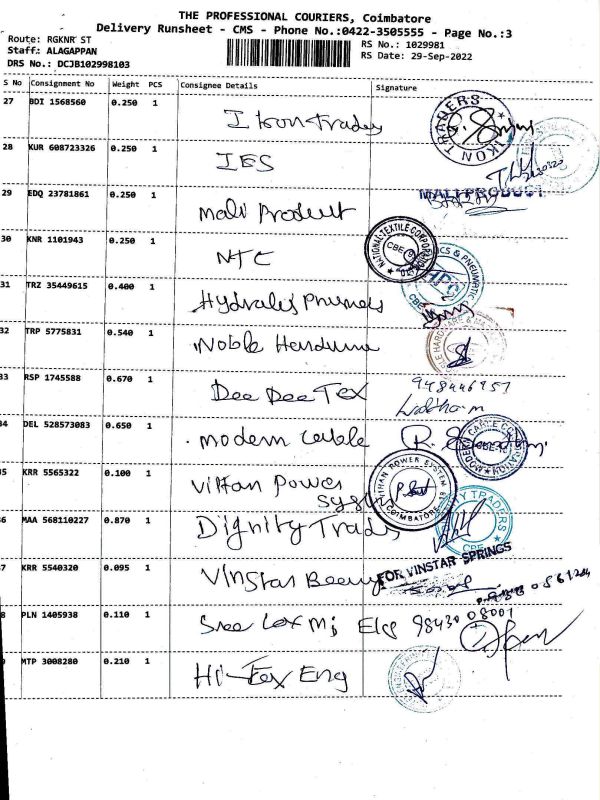 THE PROFESSIONAL COURIERS, Coimbatore
Delivery Runsheet - CMS - Phone No.:0422-3505555 - Page No.:3
Route: RGKNR ST
Staff: ALAGAPPAN
DRS No.: DCJB102998103
RS No.: 1029981
RS Date: 29-Sep-2022
S No Consignment No Weight PCS Consignee Details Signature
27 BDI 1568560 0.250 1 Ikon Trades
IKON TRADERS
28 KUR 608723326 0.250 1 IES
29 EDQ 23781861 0.250 1 Mali Product
MALI PRODUCT
30 KNR 1101943 0.250 1 NTC
NATIONAL TEXTILE CORPORATION
CBE
31 TRZ 35449615 0.400 1
CS & PNEUMATIC
HPS
CBE
32 TRP 5775831 0.540 1 Noble
BLE HARDWARE &
33 RSP 1745588 0.670 1 Dee Dee Tex
34 DEL 528573083 0.650 1 modern cable
MODERN CABLE CORPORATION
35 KRR 5565322 0.100 1 Vihan Power
System
VIHAN POWER SYSTEM
COIMBATORE-18
36 MAA 568110227 0.870 1 Dignity Trades
TY TRADERS
CBE
37 KRR 5540320 0.095 1 Vinstar
FOR VINSTAR SPRINGS
38 PLN 1405938 0.110 1 Sree Laxmi Elcs 98430 08001
39 MTP 3008280 0.210 1 Hi-Tex Eng